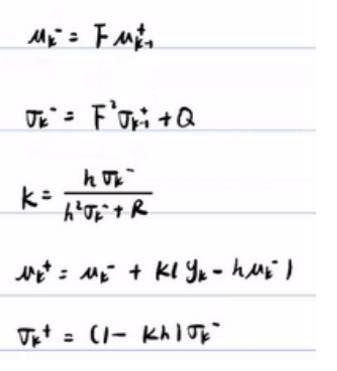 μₖ⁻ = F μₖ₋₁⁺
σₖ⁻ = F² σₖ₋₁⁺ + Q
K = hσₖ⁻ / (h²σₖ⁻ + R)
μₖ⁺ = μₖ⁻ + K(yₖ - hμₖ⁻)
σₖ⁺ = (1 - Kh)σₖ⁻